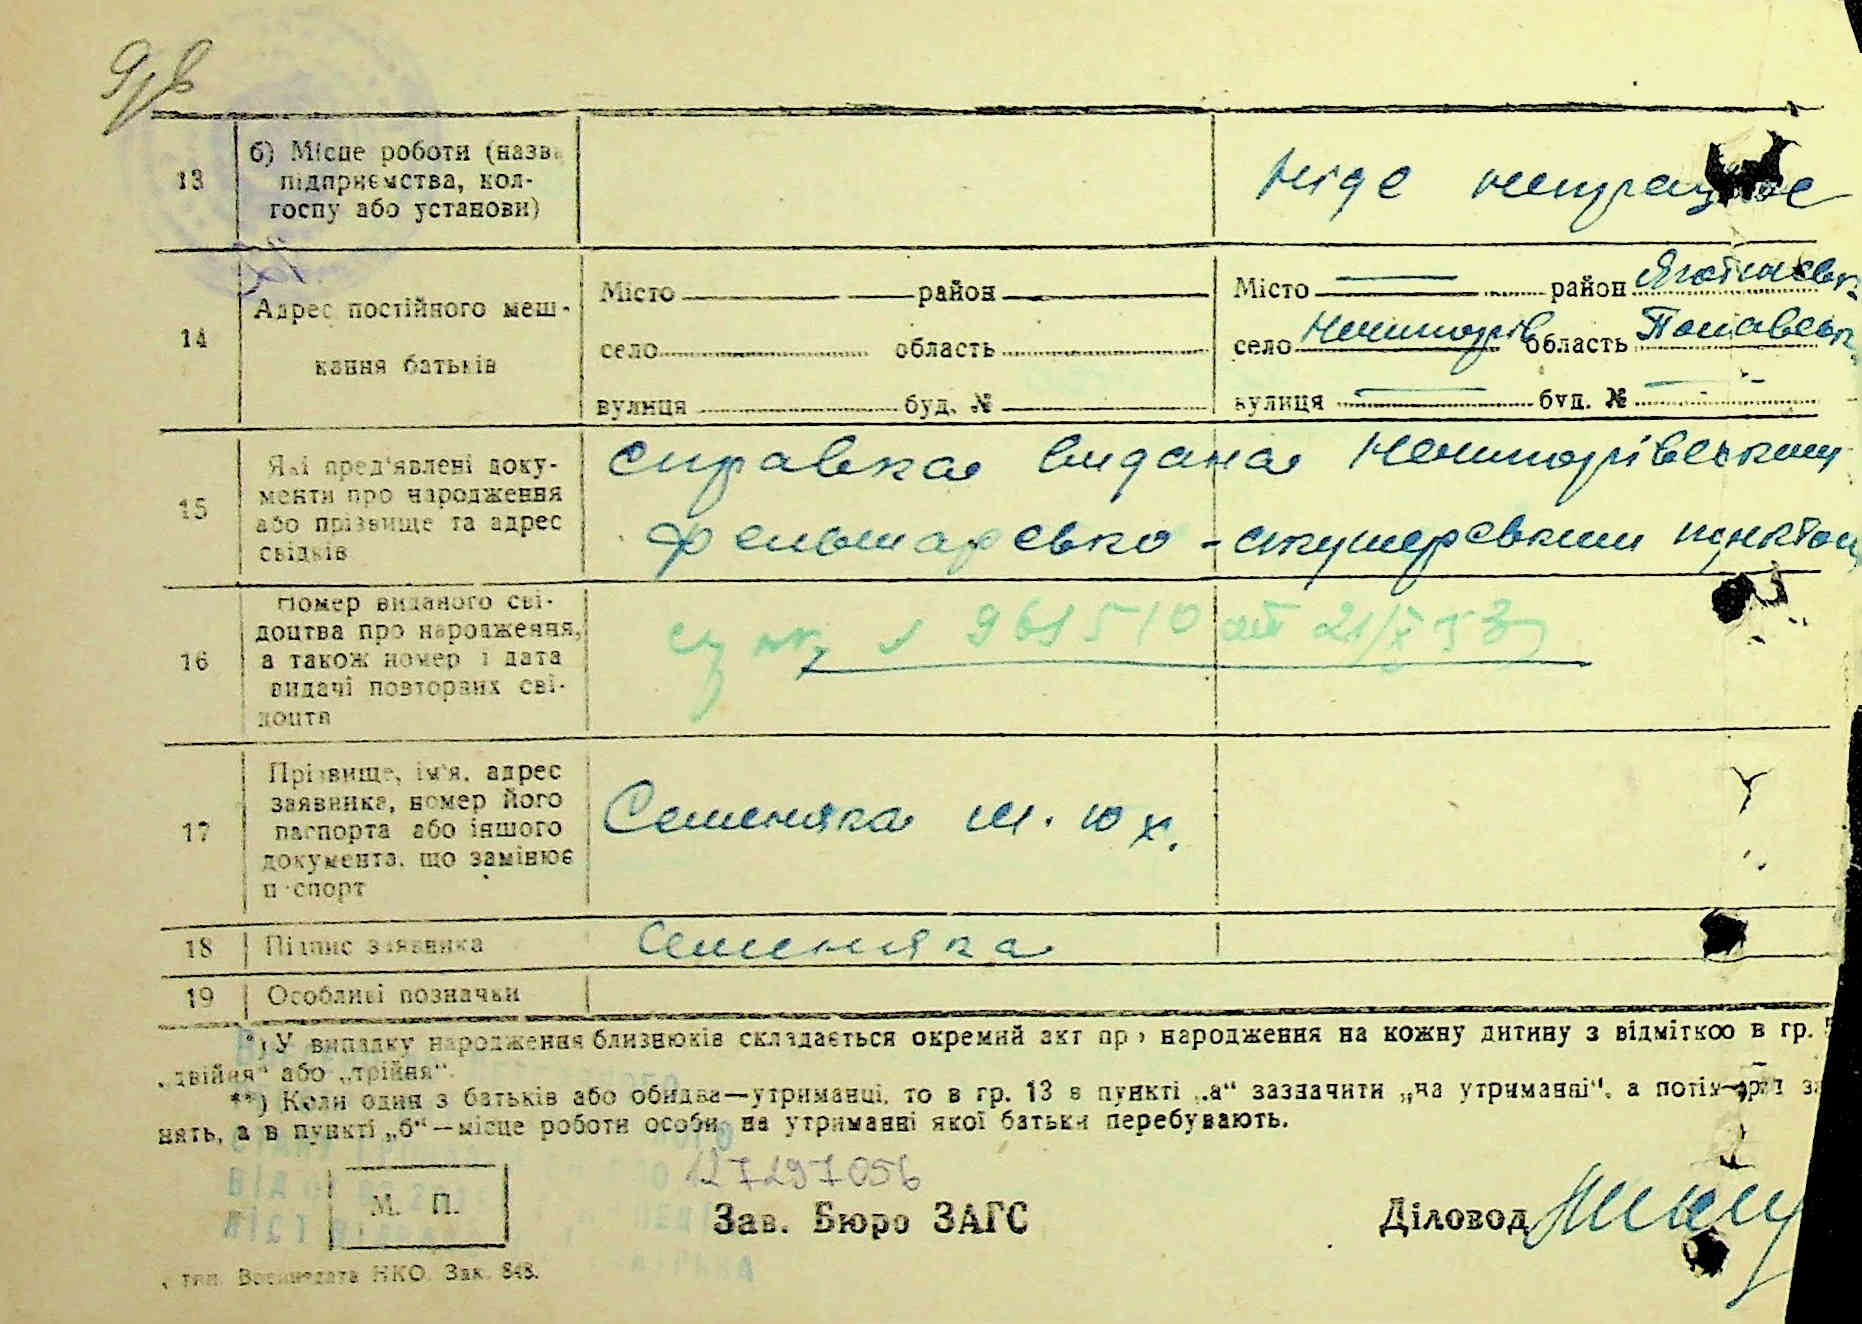 13 б) Місце роботи (назва
підприємства, кол-
госпу або установи)
ніде непрацює
14 Адрес постійного меш-
кання батьків
Місто район
село область
вулиця буд. №
Місто район Яготинськ
село Нечипорів область Полтавськ
вулиця буд. №
15 Які пред'явлені доку-
менти про народження
або прізвище та адрес
свідків
справка видана Нечипорівським
фельшарсько-акушерським пунктом
16 Номер виданого сві-
доцтва про народження,
а також номер і дата
видачі повторних сві-
доцтв
№ 961510 от 21/X 53
17 Прізвище, ім'я, адрес
заявника, номер його
паспорта або іншого
документа, що замінює
п спорт
Семеняка М. Юх.
18 Підпис заявника
Семеняка
19 Особливі позначки
*) У випадку народження близнюків складається окремий акт про народження на кожну дитину з відміткою в гр. 5
„двійня“ або „трійня“.
**) Коли один з батьків або обидва—утриманці, то в гр. 13 в пункті „а“ зазначити „на утриманні“, а потім
нять, а в пункті „б“—місце роботи особи, на утриманні якої батьки перебувають.
127297056
М. П.
Зав. Бюро ЗАГС
Діловод
тип. Воениздата НКО. Зак. 848.